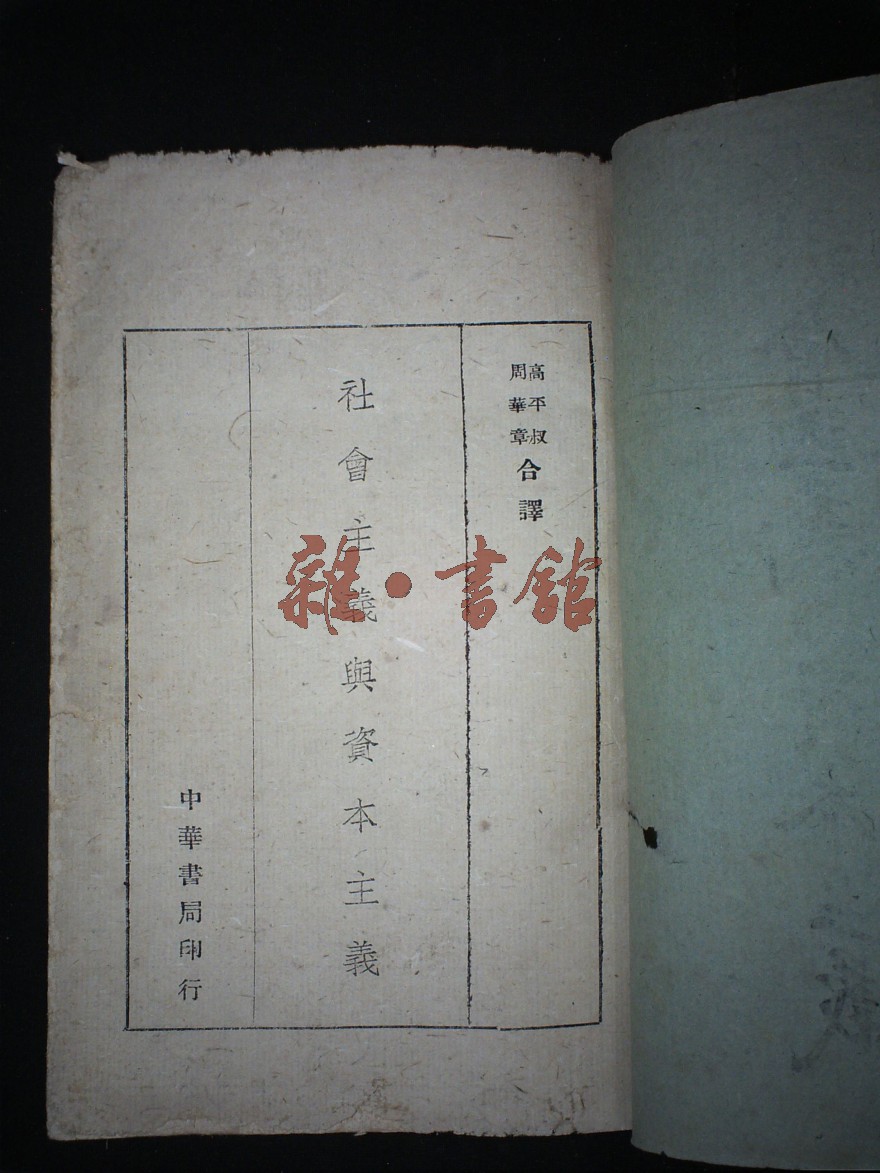 高平叔
周華章
合譯
社會主義與資本主義
中華書局印行
雜·書館